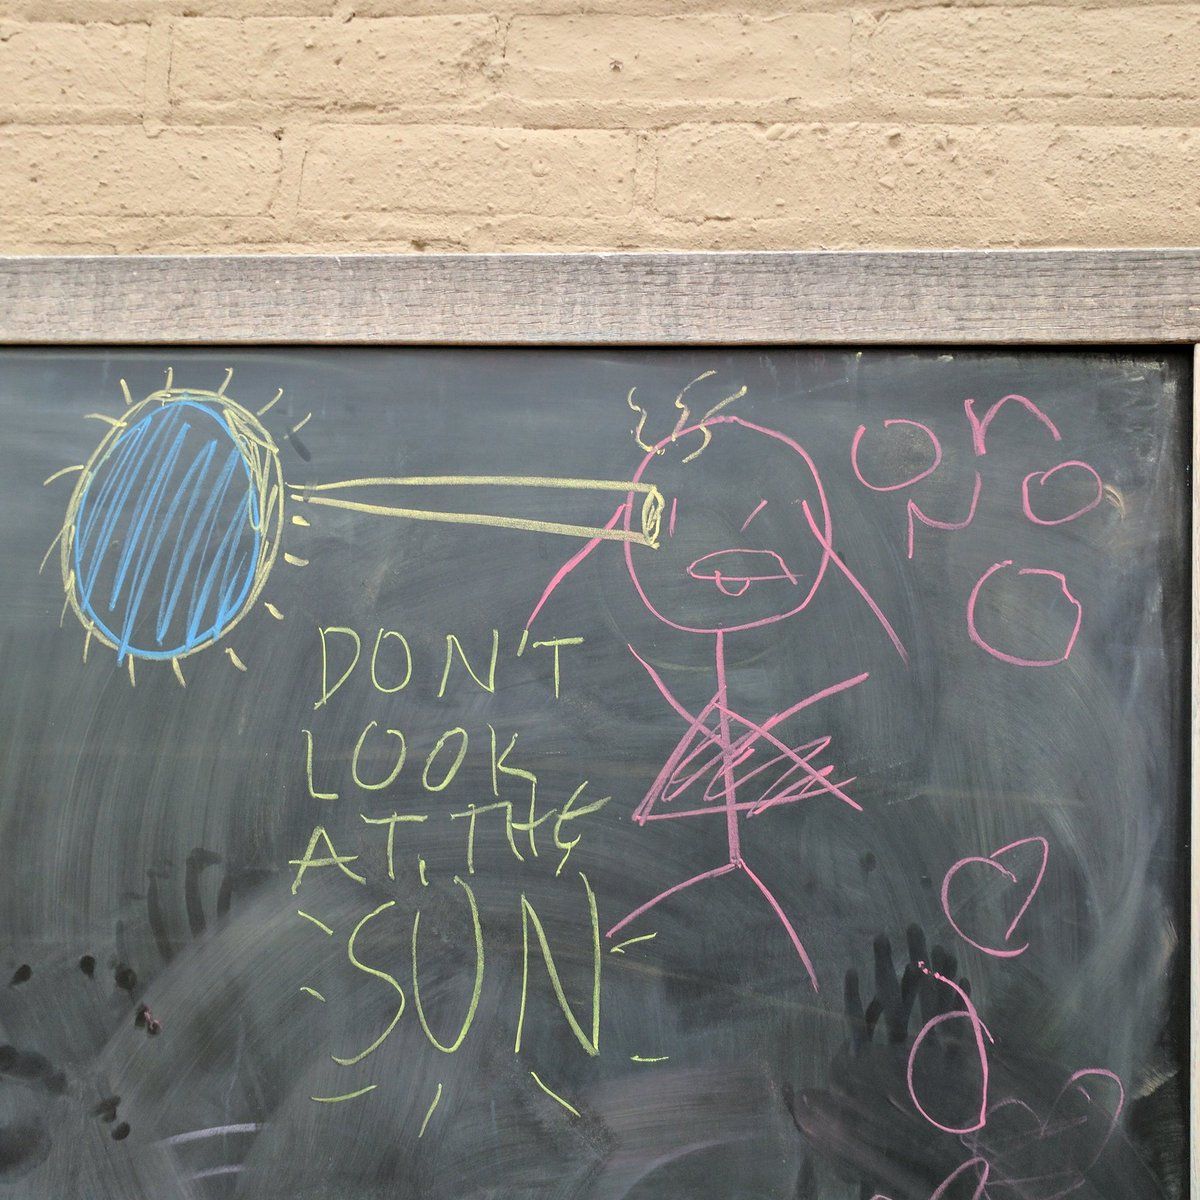 DON'T
LOOK
AT THE
SUN